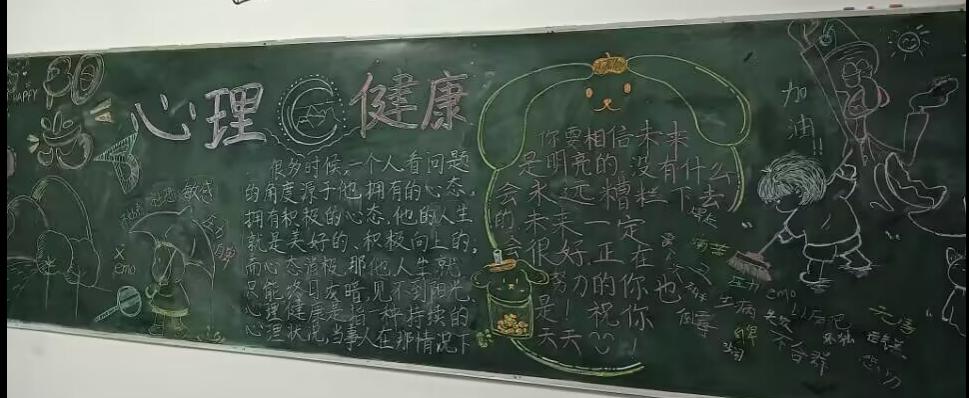 HAPPY
心理健康
很多时候,一个人看问题
的角度源于他拥有的心态,
拥有积极的心态,他的人生
就是美好的、积极向上的;
而心态消极,那他人生就
只能终日灰暗,见不到阳光,
心理健康是指一种持续的
心理状况,当事人在那情况下
你要相信未来
是明亮的,没有什么
会永远糟糕下去
的未来一定
会很好,正在
努力的你也
是!祝你
天天
加油!!
敏感
emo
压力
emo
不合群